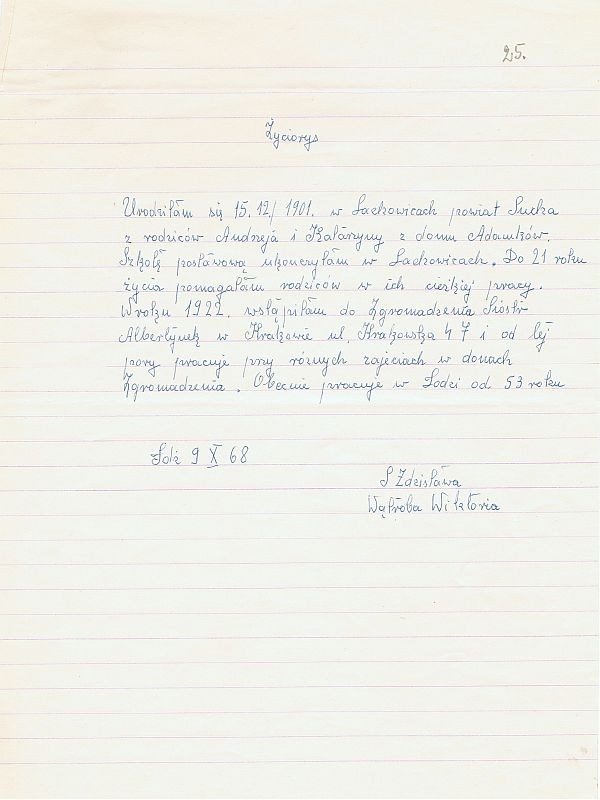 25.
Życiorys
Urodziłam się 15.12/1901. w Lachowicach powiat Sucha
z rodziców Andrzeja i Katarzyny z domu Adamków.
Szkołę postawową ukonczyłam w Lachowicach. Do 21 roku
życia pomagałam rodziców w ich cieżkiej pracy.
W roku 1922. wstąpiłam do Zgromadzenia Sióstr
Albertynek w Krakowie ul. Krakowska 47 i od tej
pory pracuje przy różnych zajeciach w domach
Zgromadzenia. Obecnie pracuje w Łodzi od 53 roku
Łódż 9 X 68
S Zdzisława
Wątroba Wiktoria